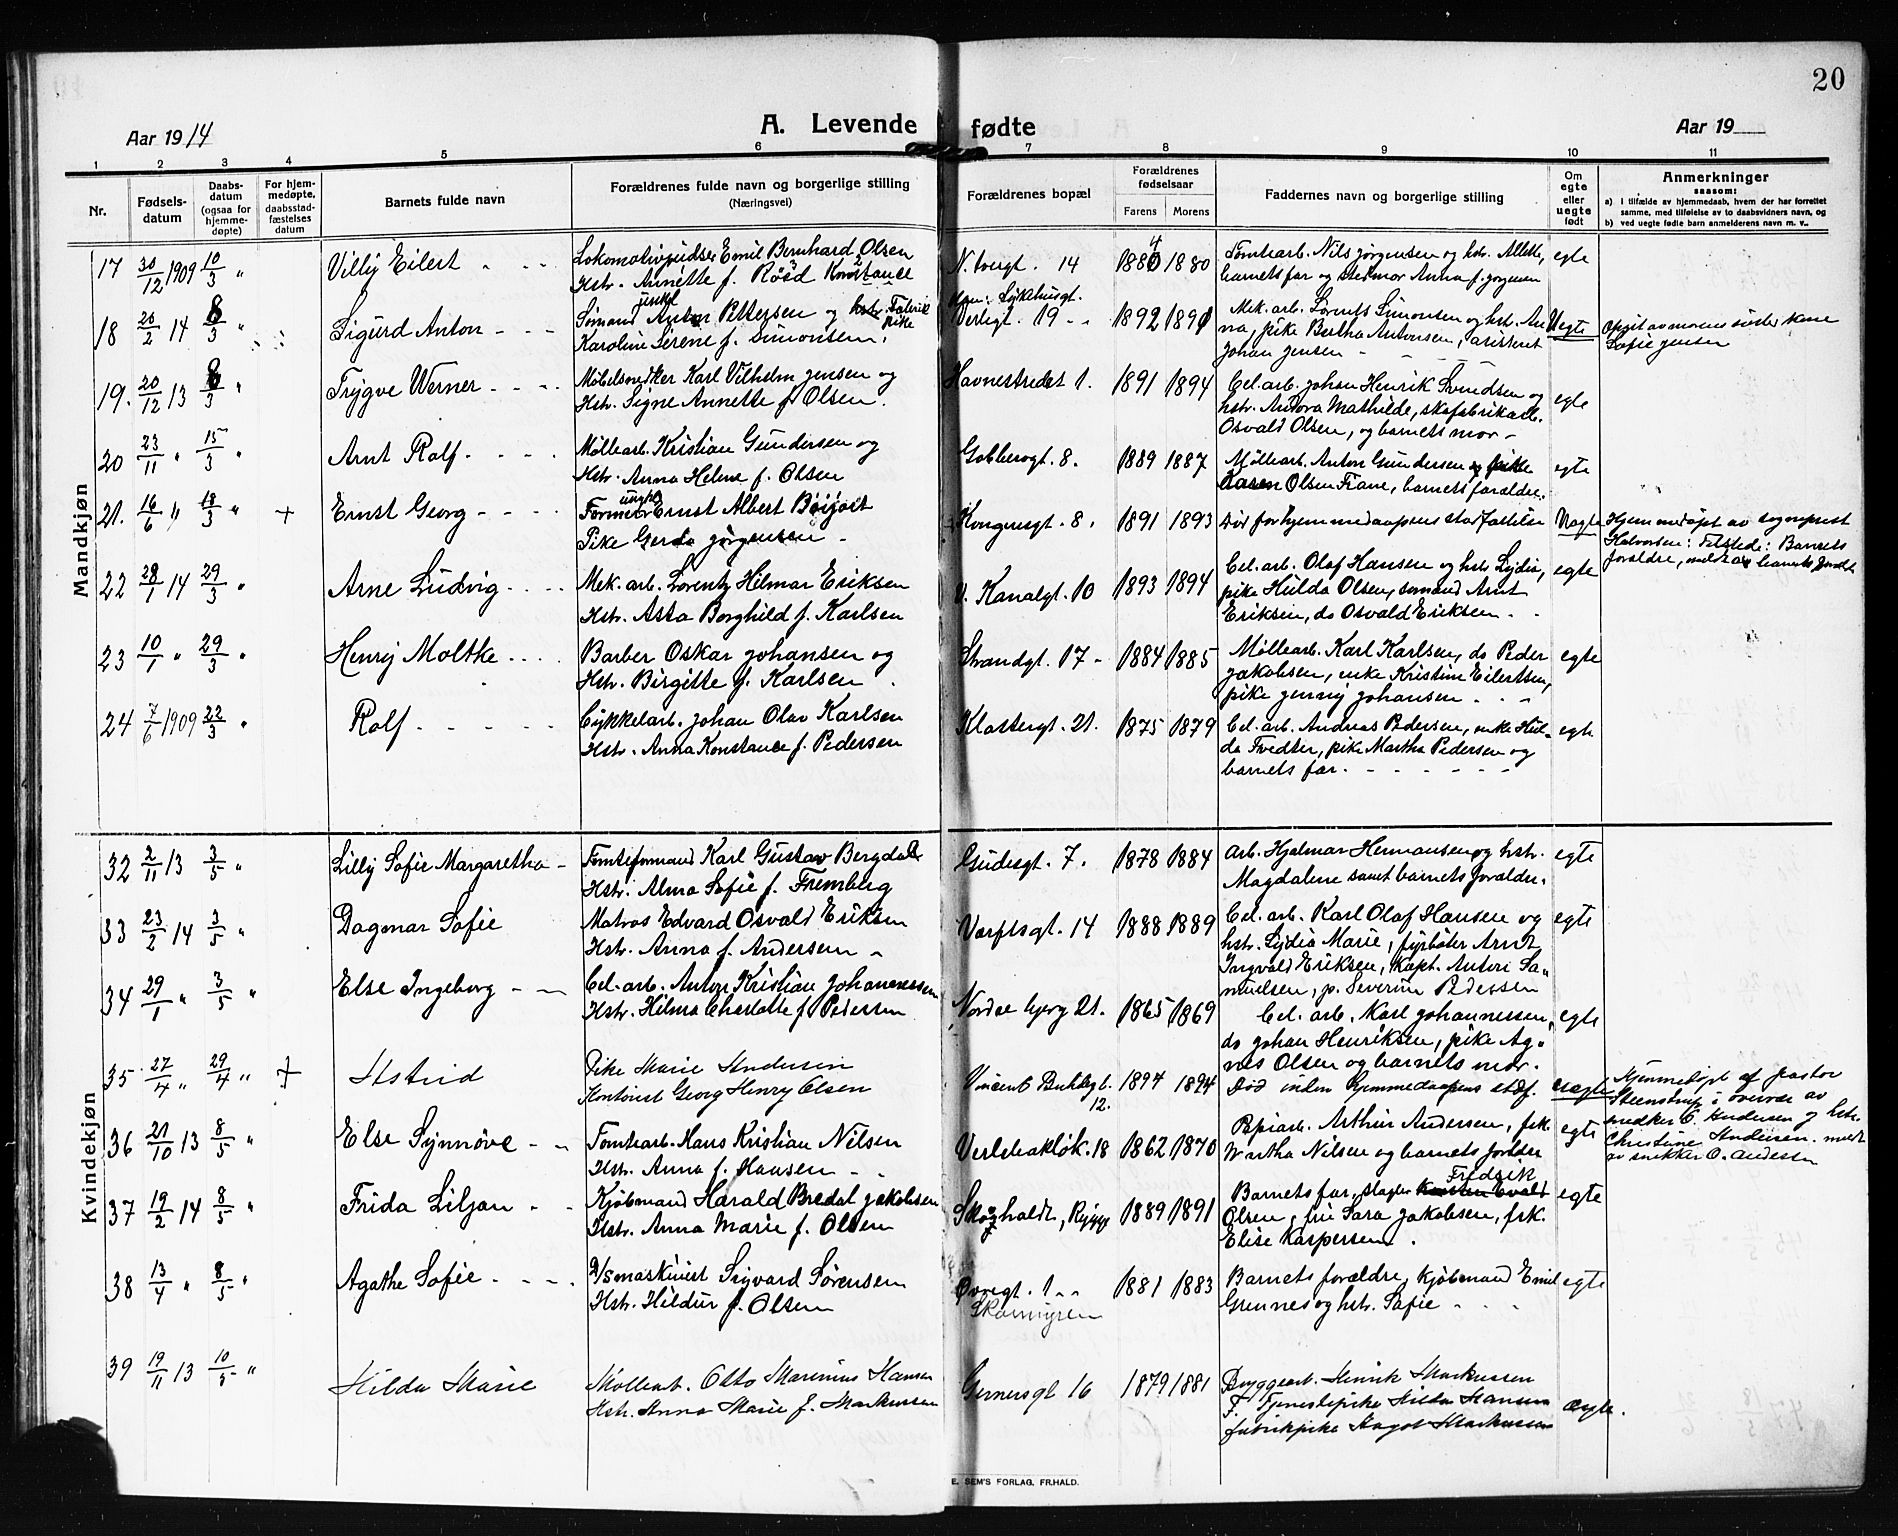 20
Aar 1914
A. Levende fødte
Aar 19
1 2 3 4 5 6 7 8 9 10 11
Nr.
Fødsels-
datum
Daabs-
datum
(ogsaa for
hjemme-
døpte)
For hjem-
medøpte,
daabsstad-
fæstelses
datum
Barnets fulde navn
Forældrenes fulde navn og borgerlige stilling
(Næringsvei)
Forældrenes bopæl
Forældrenes
fødselsaar
Farens Morens
Faddernes navn og borgerlige stilling
Om
egte
eller
uegte
født
Anmerkninger
saasom:
a) i tilfælde av hjemmedaab, hvem der har forrettet
samme, med tilføielse av to daabsvidners navn, og
b) ved uegte fødte barn anmelderens navn m. v..
Mandkjøn
17 30/12 1909 10/3 " Villy Eilert
Emil Bernhard Olsen
Hstr. Annette f.
14 1880 1880
Nils Jørgensen og hstr.
barnets far og Anna f. Jørgensen
egte
18 20/2 14 8/3 " Sigurd Anton
Sømand Anton Pettersen og
Karoline Serene f. Simonsen.
19 1892
Mek. arb. Simonsen og hst. An
na, pike Bertha Antonsen,
Johan Jensen
Uegte
Sofie Jensen
19. 20/12 13 8/3 " Trygve Werner
Møbelsnedker Karl Vilhelm Jensen og
Hstr. Signe Annette f. Olsen.
Havnestredet 1. 1891 1894
Cel. arb. Johan Henrik Svendsen og
hstr. Mathilde,
Osvald Olsen, og barnets mor
egte
20 23/11 " 15/3 " Arnt Rolf
Møllearb. Kristian Gundersen og
Hstr. Anna Helene f. Olsen
8. 1889 1887
Møllearb. Anton Gundersen
Karen Olsen barnets forældre.
egte
21. 16/6 " 18/3 " + Ernst Georg
ungk.
Former Ernst Albert
Pike Gerda Jørgensen
Kongensgt. 8. 1891 1893
Død før hjemmedaapens stadfæstelse
Uegte
Hjemmedøpt av sogneprest
Halvorsen: Tilstede: Barnets
22 28/1 14 29/3 " Arne Ludvig
Mek. arb. Lorentz Hilmar Eriksen
Hstr. Asta Borghild f. Karlsen
V. Kanalgt. 10 1893 1894
Cel. arb. Olaf Hansen og hstr Lydia,
pike Hulda Olsen, sømand Arnt
Eriksen, do Osvald Eriksen
egte
23 10/1 " 29/3 " Henry Moltke
Barber Oskar Johansen og
Hstr. Birgitte f. Karlsen
Strandgt. 17 1884 1885
Møllearb. Karl Karlsen, do Peder
Jakobsen, enke Kristine Eilertsen,
pike Jenny Johansen
egte
24 7/6 1909 22/3 " Rolf
Cykkelarb. Johan Olav Karlsen
Hstr. Anna Konstance f. Pedersen
Klostergt. 21. 1875 1879
Cel. arb. Andreas Pedersen, enke Hul-
da Tvedter, pike Martha Pedersen og
barnets far.
egte
Kvindekjøn
32 2/11 13 3/5 " Lilly Sofie Margaretha
Tomteformand Karl Gustav Bergdahl
Hstr. Alma Sofie f. Fremberg
Gudesgt. 7. 1878 1884
Arb. Hjalmar Hermansen og hstr.
Magdalene samt barnets forældre.
egte
33 23/2 14 3/5 " Dagmar Sofie
Matros Edvard Osvald Eriksen
Hstr. Anna f. Andersen
Værftsgt. 14 1888 1889
Cel. arb. Karl Olaf Hansen og
hstr. Lydia Marie, fyrbøter Arnt
Ingvald Eriksen, kapt. Anton Sa-
muelsen, p. Severine Pedersen
egte
34 29/1 " 3/5 " Else Ingeborg
Cel. arb. Anton Kristian Johannessen
Hstr. Hilma Charlotte f. Pedersen
Nordre bjerg 21. 1865 1869
Cel. arb. Karl Johannessen,
do Johan Henriksen, pike Ag-
nes Olsen og barnets mor.
egte
35 27/4 " 29/4 " + Astrid
Pike Marie Andersen
Kontorist Georg Henry Olsen
12. 1894 1894
Død inden hjemmedaapens stadf.
uægte
Hjemmedøpt af pastor
Steenstrup i overvær av
snedker O. Andersen og hstr.
Christine Andersen. meldt
av snikker O. Andersen
36 21/10 13 8/5 " Else Synnøve
Tomtearb. Hans Kristian Nilsen
Hstr. Anna f. Hansen
18 1862 1870
Papirarb. Arthur Andersen, frk.
Martha Nilsen og barnets forældre
egte
37 19/2 14 8/5 " Frida Liljan
Kjøbmand Harald Bredal Jakobsen
Hstr. Anna Marie f. Olsen
Skogholdt, Rygge 1889 1891
Fredrik
Barnets far, slagter
Olsen, fru Sara Jakobsen, frk.
Elise Kaspersen.
egte
38 13/4 " 8/5 " Agathe Sofie
D/S maskinist Sigvard Sørensen
Hstr. Hildur f. Olsen
1 1881 1883
Barnets forældre, Kjøbmand Emil
Grennes og hstr. Sofie
egte
39 19/11 13 10/5 " Hilda Marie
Møllearb. Otto Marinius Hansen
Hstr. Anna Marie f. Markussen
Gernersgt 16 1879 1881
Bryggearb. Henrik Markussen
Tjenestepike Hilda Hansen
fabrikpike Aagot Markussen
ægte.
E. SEM'S FORLAG, FR.HALD.